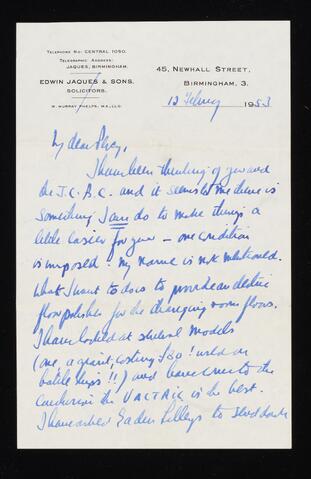 TELEPHONE NO: CENTRAL 1050.
TELEGRAPHIC ADDRESS:
JAQUES, BIRMINGHAM.
EDWIN JAQUES & SONS.
SOLICITORS.
W. MURRAY PHELPS, M.A., LL.D.
45, NEWHALL STREET,
BIRMINGHAM, 3.
12 Febury 1953
My dear
I have been thinking of you and
the J.C.B.C. and it seems to me there is
something I can do to make things a
little easier for you – one condition
is imposed: my name is not mentioned.
What I want to do is to provide an electric
floor polisher for the changing room floors.
I have looked at several models
(one a giant, costing £80! used on
battle ships!!) and have come to the
conclusion the VACTRIC is the best.
I have asked Eaden Lilleys to send down